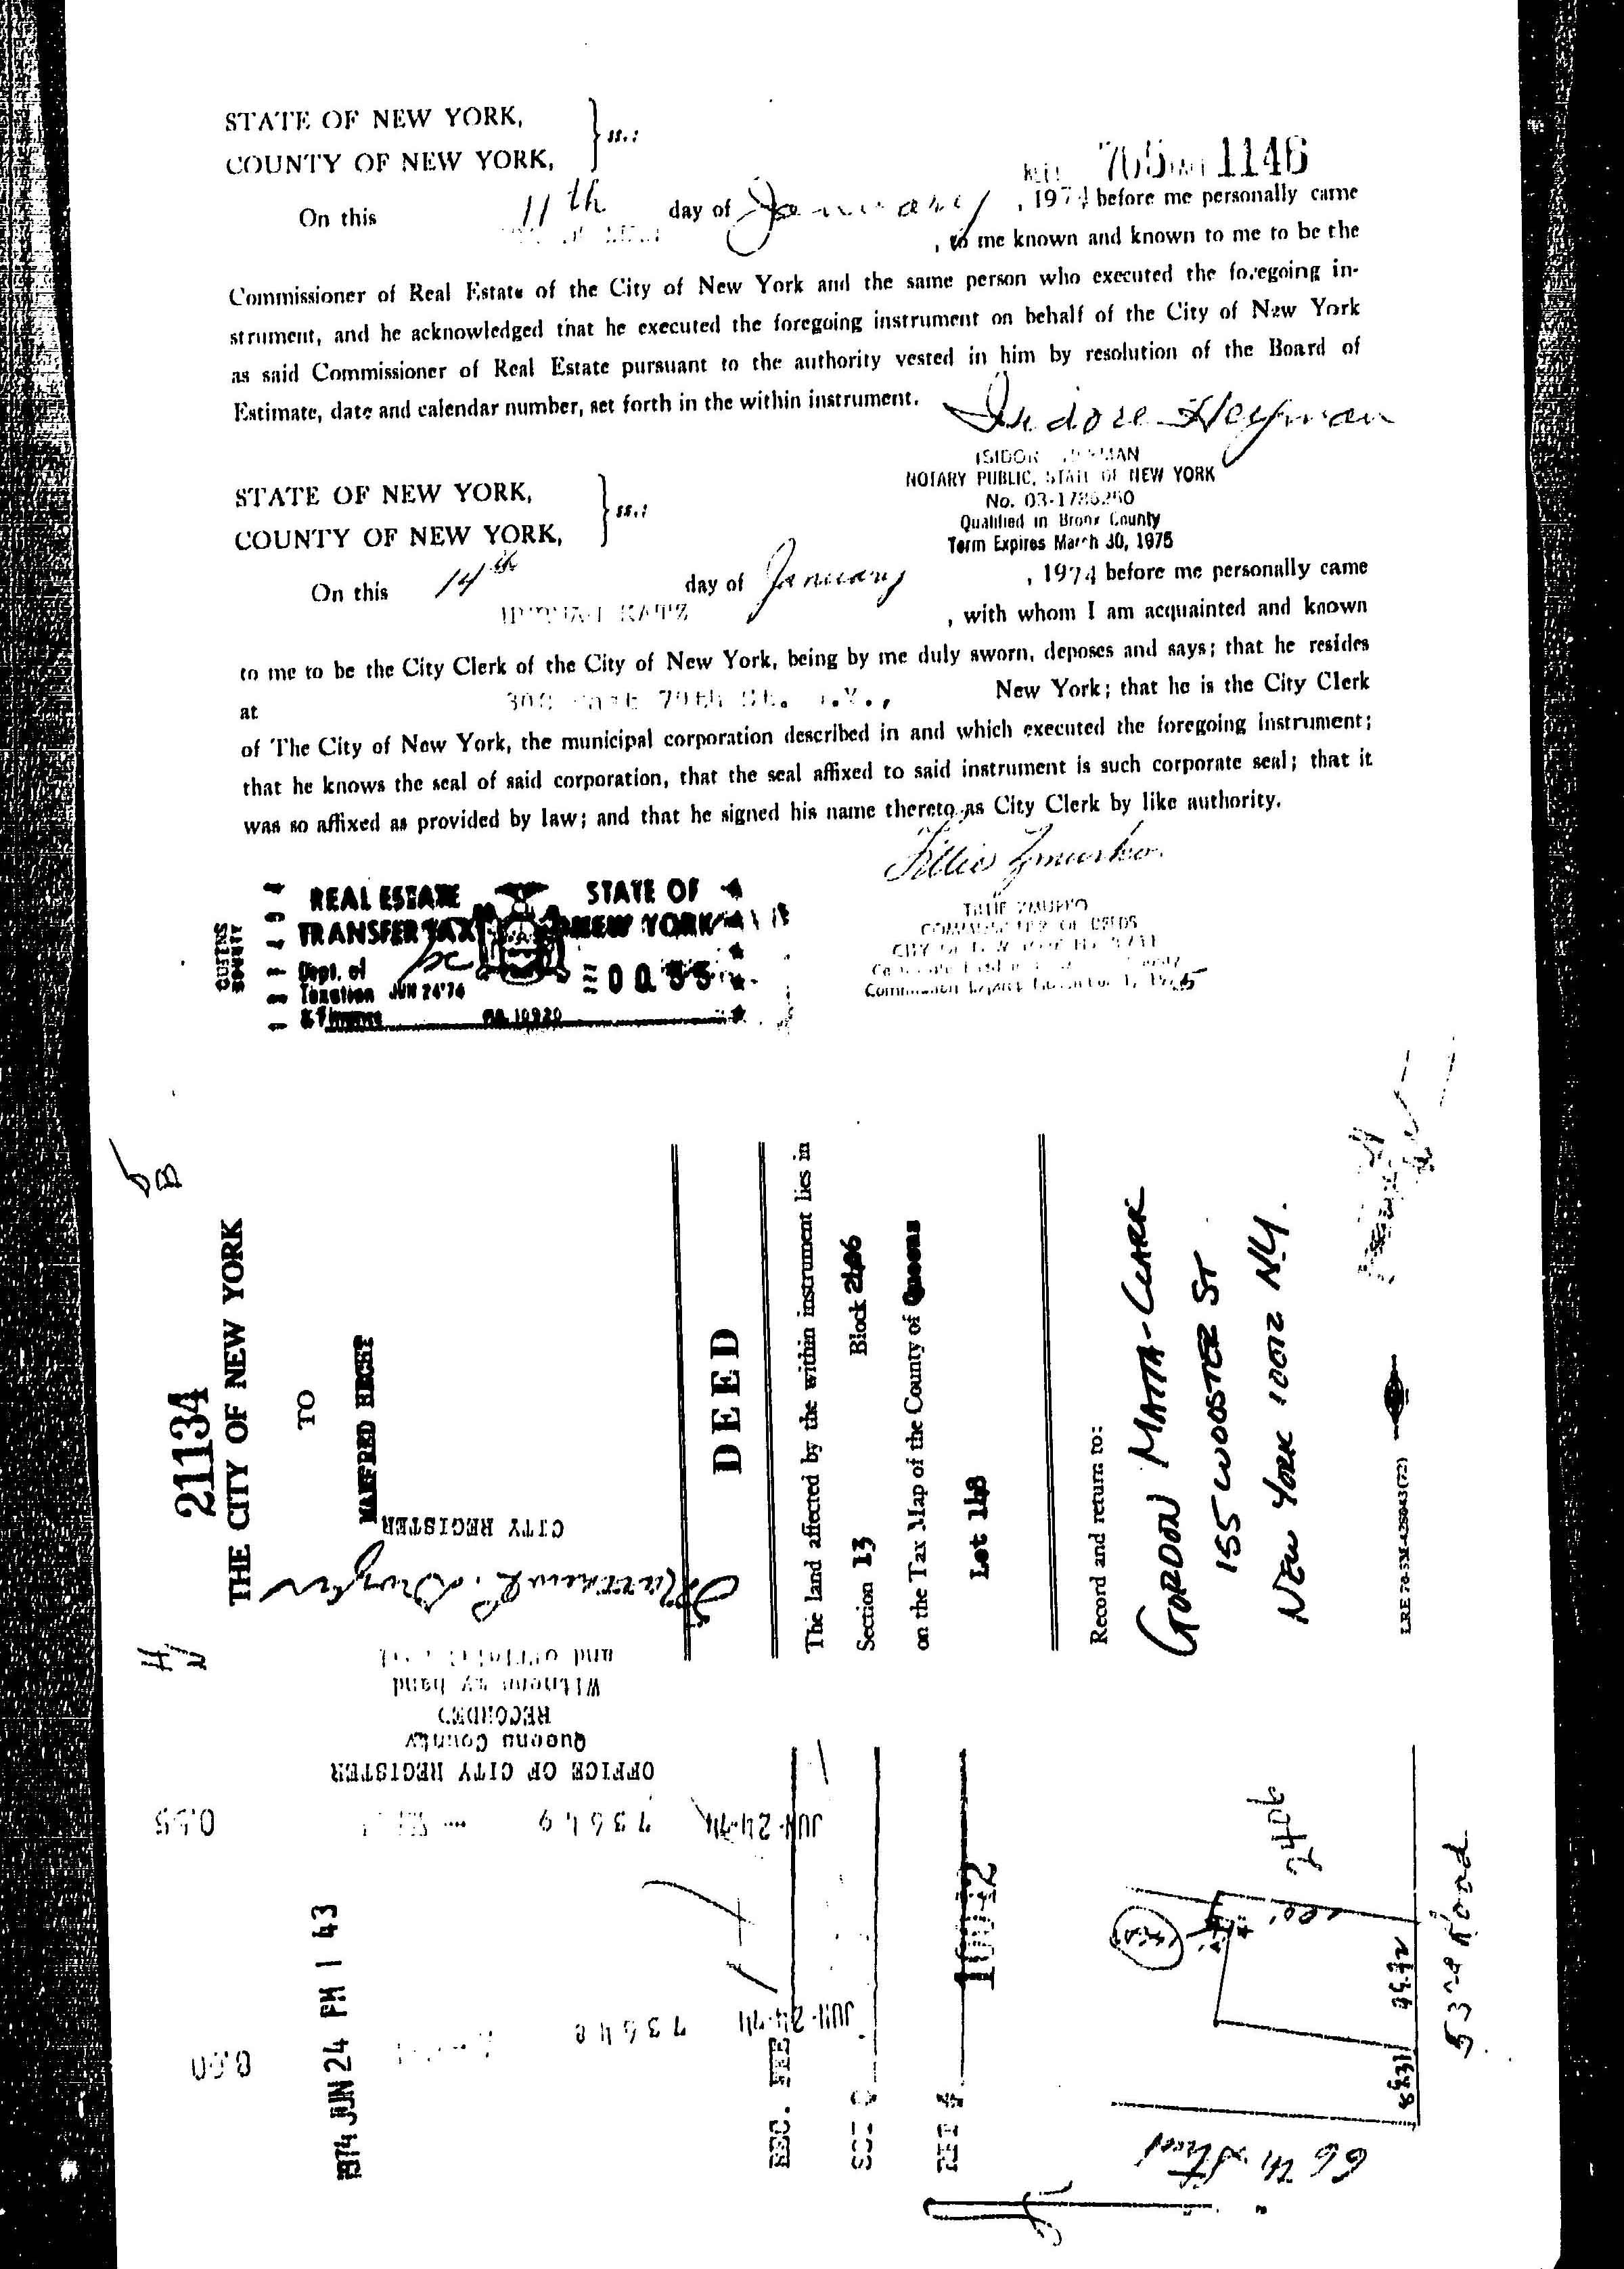 STATE OF NEW YORK,
COUNTY OF NEW YORK,
ss.:
705 1146
On this 11th day of January, 1974 before me personally came
, to me known and known to me to be the
Commissioner of Real Estate of the City of New York and the same person who executed the foregoing in-
strument, and he acknowledged that he executed the foregoing instrument on behalf of the City of New York
as said Commissioner of Real Estate pursuant to the authority vested in him by resolution of the Board of
Estimate, date and calendar number, set forth in the within instrument.
Isidore Heyman
NOTARY PUBLIC, STATE OF NEW YORK
Qualified in Bronx County
Term Expires March 30, 1975
STATE OF NEW YORK,
COUNTY OF NEW YORK,
ss.:
On this 14th day of January, 1974 before me personally came
, with whom I am acquainted and known
to me to be the City Clerk of the City of New York, being by me duly sworn, deposes and says; that he resides
at New York; that he is the City Clerk
of The City of New York, the municipal corporation described in and which executed the foregoing instrument;
that he knows the seal of said corporation, that the seal affixed to said instrument is such corporate seal; that it
was so affixed as provided by law; and that he signed his name thereto as City Clerk by like authority.
COMMISSIONER OF DEEDS
QUEENS
COUNTY
REAL ESTATE
TRANSFER TAX
Dept. of
Taxation JUN 24'74
& Finance
STATE OF
NEW YORK
00.55
21134
THE CITY OF NEW YORK
TO
MANFRED HECHT
DEED
The land affected by the within instrument lies in
Section 13 Block 2406
on the Tax Map of the County of Queens
Lot 148
Record and return to:
GORDON MATTA-CLARK
155 WOOSTER ST.
NEW YORK 10012 N.Y.
CITY REGISTER
Witness my hand
RECORDED
Queens County
OFFICE OF CITY REGISTER
0.55
JUN-24-74
1974 JUN 24 PM 1 43
JUN-24-74
REC. FEE
10042
2406
53rd Road
66th Street